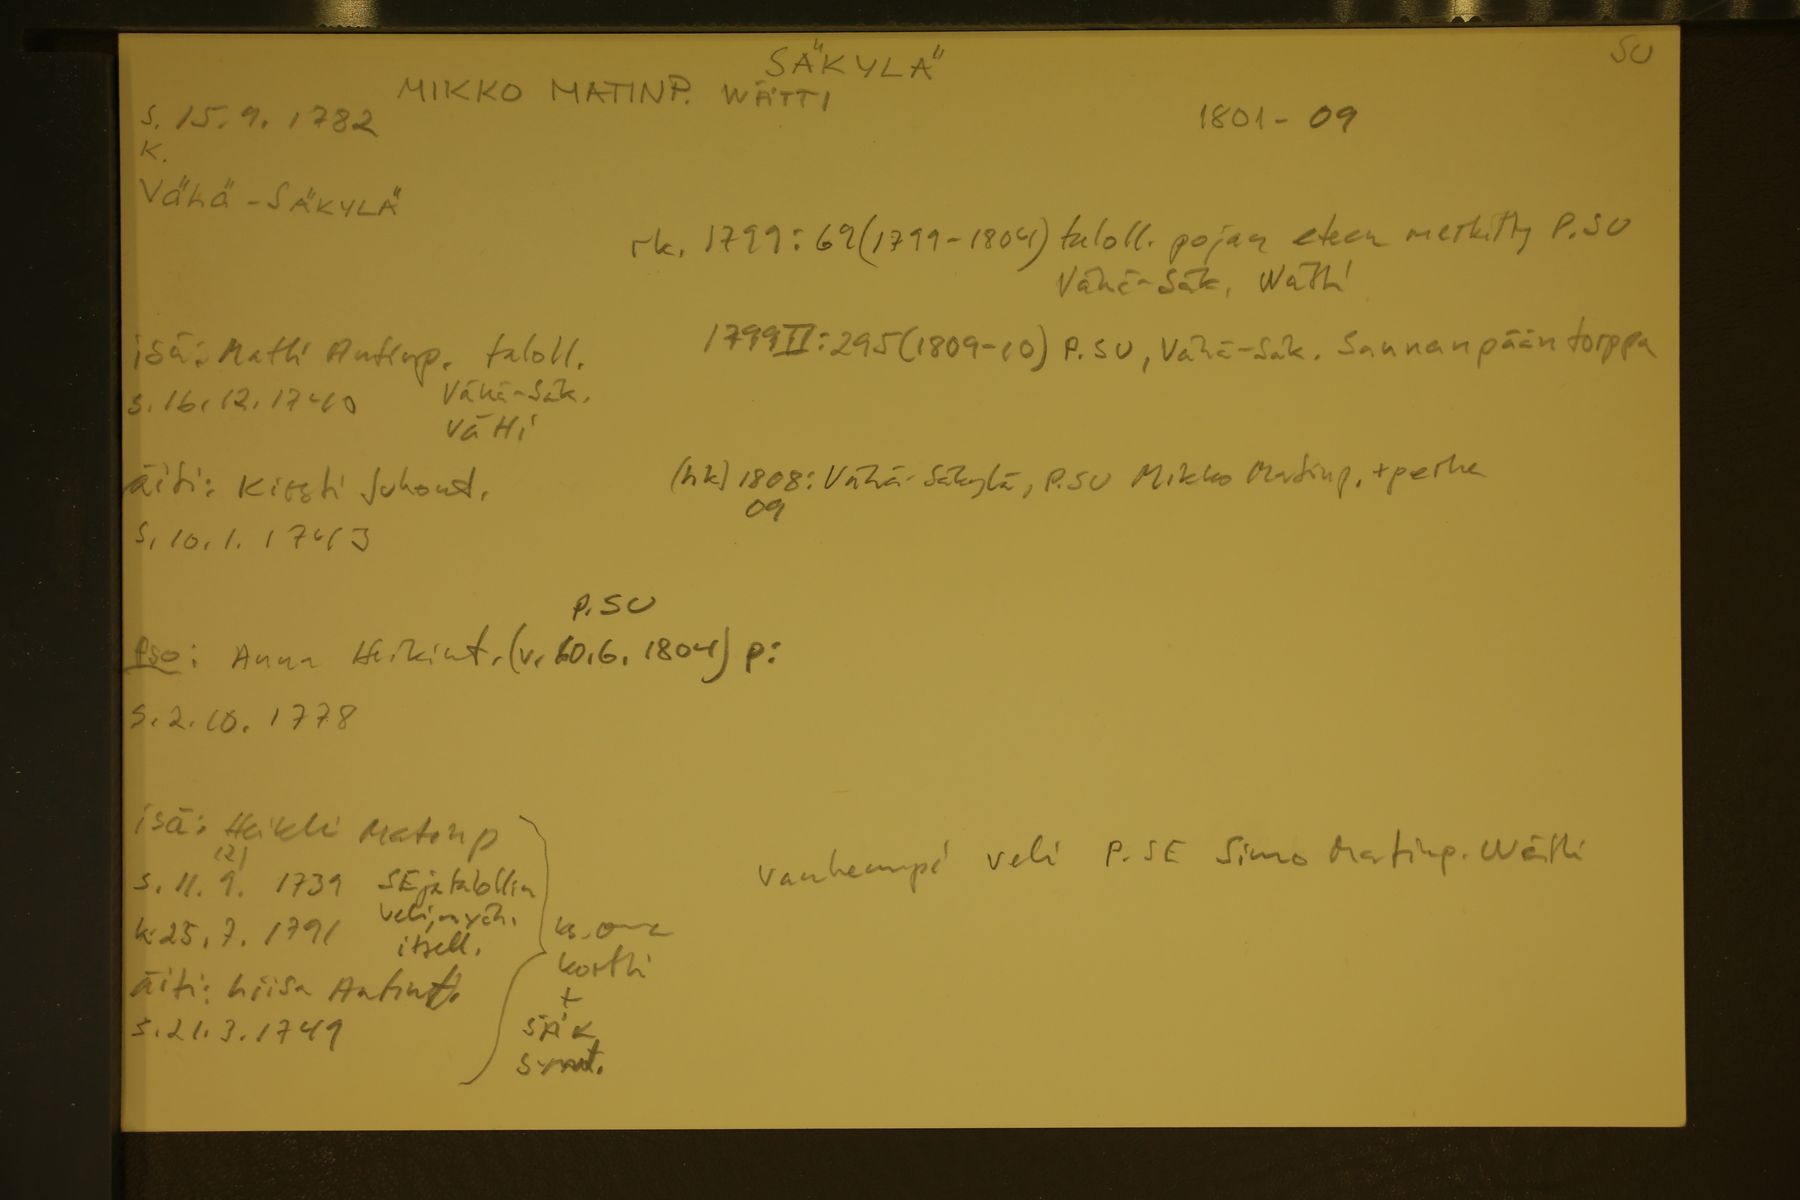 SÄKYLÄ
SU
MIKKO MATINP. WÄTTI
s. 15.9. 1782
1801-09
K.
Vähä-SÄKYLÄ
rk. 1799: 69 (1799-1804) taloll. pojan eteen merkitty P.SU
Vähä-Säk. Wätti
isä: Matti Antinp. taloll.
1799 II: 295 (1809-10) P.SU, Vähä-Säk. Sannanpään torppa
s. 16.12.1740 Vähä-Säk.
Vätti
äiti: Kirsti Juhont.
(hk) 1808: Vähä-Säkylä, P.SU Mikko Matinp. + perhe
09
s. 10.1. 1743
P.SU
Pso: Anna Heikint. (v. 6.1804) p:
s. 2.10. 1778
isä: Heikki Matinp
(2)
s. 11. 9. 1739 SE ja talollin
veli, myöh.
k. 25.7. 1791
itsell.
äiti: Liisa Antint.
s. 21.3.1749
ks. oma
kortti
+
SÄK
synt.
vanhempi veli P.SE Simo Matinp. Wätti